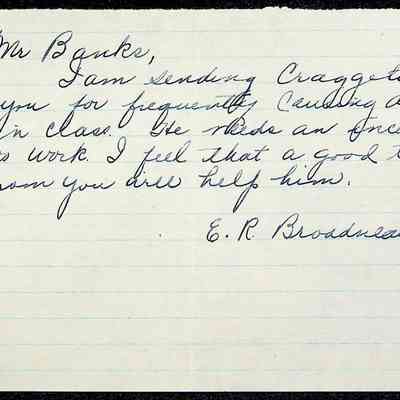 Mr Banks,
I am sending Craggett
you for frequently causing a
in class. He needs an ince
work. I feel that a good t
from you will help him.
E. R. Broadnea